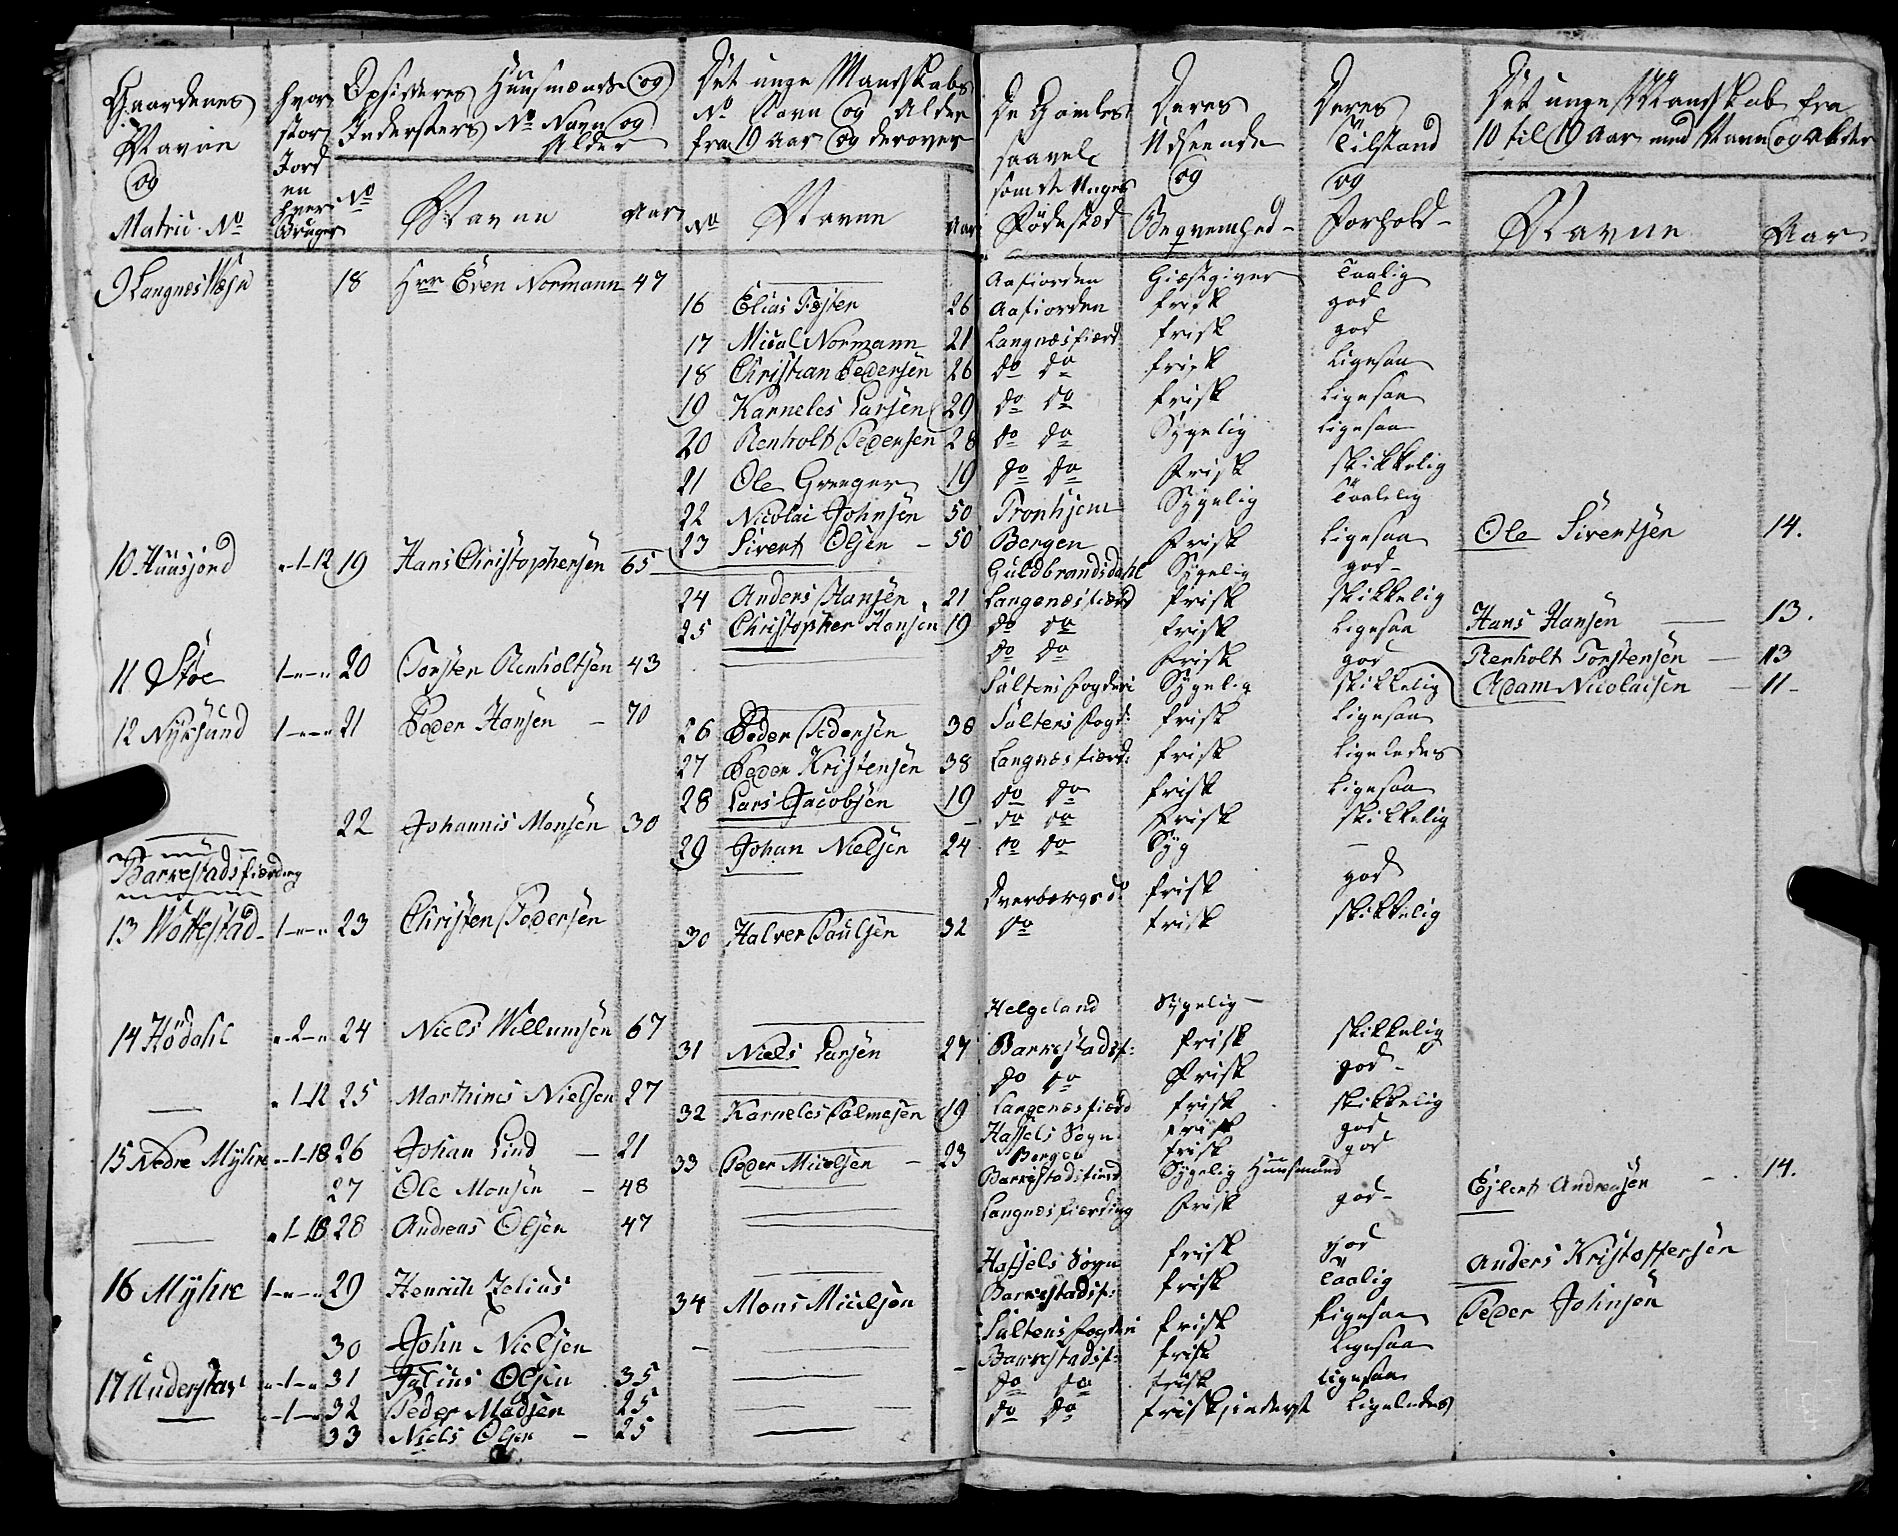 Gaardenes Navne og Matric. No | hvor stor Jord en hver Bruger | Opsidderes Huusmænds og Indersters No Navn og Alder | Det unge Mandskabs No Navn og Alder fra 19 Aar og derover | De Gamles saavel som de Unges Fødested | Deres Udseende og Beqvemhed | Deres Tilstand og Forhold | Det unge Mandskab fra 10 til 19 Aar med Navn og Alder
No | Navne | Aar | No | Navne | Aar | Navne | Aar
9 Langnes | 18 | Hrr Even Normann | 47 | Aafiorden | Giæstgiver | Taalig
16 | Elias | 26 | Aafiorden | frisk | god
17 | Mical Normann | 21 | Langnæsfiærd | frisk | god
18 | Christian Pedersen | 26 | do do | frisk | ligesaa
19 | Karneles Larsen | 29 | do do | frisk | ligesaa
20 | Renholt Pedersen | 28 | do do | Sygelig | ligesaa
21 | Ole Greeger | 19 | do do | Frisk | skikkelig
22 | Nicolai Johnsen | 50 | Tronhjem | Sygelig | Taalelig
23 | Sivert Olsen | 50 | Bergen | Frisk | ligesaa | Ole Sivertsen | 14.
10 Huusjord | 1-12 | 19 | Hans Christophersen | 65 | Guldbrandsdahl | Sygelig | god
24 | Anders Hansen | 21 | Langenæsfiærd | Frisk | skikkelig
25 | Christopher Hansen | 19 | do do | frisk | ligesaa | Hans Hansen | 13.
11 Støe | 1-"-" | 20 | Torsten Renholtsen | 43 | do do | Frisk | god | Renholt Torstensen | 13
12 Nyksund | 1-"-" | 21 | Peder Hansen | 70 | Saltens fogderi | Sygelig | skikkelig | Adam Nicolaisen | 11
26 | Peder Pedersen | 38 | Saltens fogd: | frisk | ligesaa
27 | Peder Kristensen | 38 | Langnæsfiærd: | frisk | ligeledes
28 | Lars Jacobsen | 19 | do do | frisk | ligesaa
22 | Johannis Monsen | 30 | do do | frisk | skikkelig
29 | Johan Nielsen | 24 | do do | Syg
Barkestadsfierding
13 Wottestad | 1-"-" | 23 | Christen Pedersen | Dverbergs d: | frisk | god
30 | Halver Paulsen | 32 | do | frisk | skikkelig
14 Hödahl | "-2-" | 24 | Niels Willumsen | 67 | Helgeland | Sygelig
31 | Niels Larsen | 27 | Barkestadsf: | frisk | skikkelig
" 1-12 | 25 | Marthines Nielsen | 27 | do do | Frisk | god
32 | Karneles Palmesen | 19 | Langenæsfiærd | frisk | skikkelig
15 Nedre Myhre | "-1-18 | 26 | Johan Lind | 21 | Hassels Sogn | frisk | god
33 | Peder Micelsen | 23 | Bergen | frisk | god
27 | Ole Monsen | 48 | Barkestadsfierd | Sygelig Huusmand
" 1-18 | 28 | Andreas Olsen | 47 | Langnæsfiærding | Frisk | god | Ejlert Andreasen | 14.
16 Myhre | 1-"-" | 29 | Henrich Zelius | Hassels Sogn | frisk | god | Anders Kristoffersen
34 | Mons Micelsen | Barkestadsf: | frisk | Taalig | Peder Johnsen
30 | John Nielsen | Saltens fogderi | frisk | ligesaa
17 | "-1-" | 31 | Julius Olsen | 35 | Barkestadsf: | frisk | ligesaa
"-1-" | 32 | Peder Madsen | 25 | do do | frisk | ligesaa
33 | Niels Olsen | 25 | do do | frisk, inderst | ligeledes